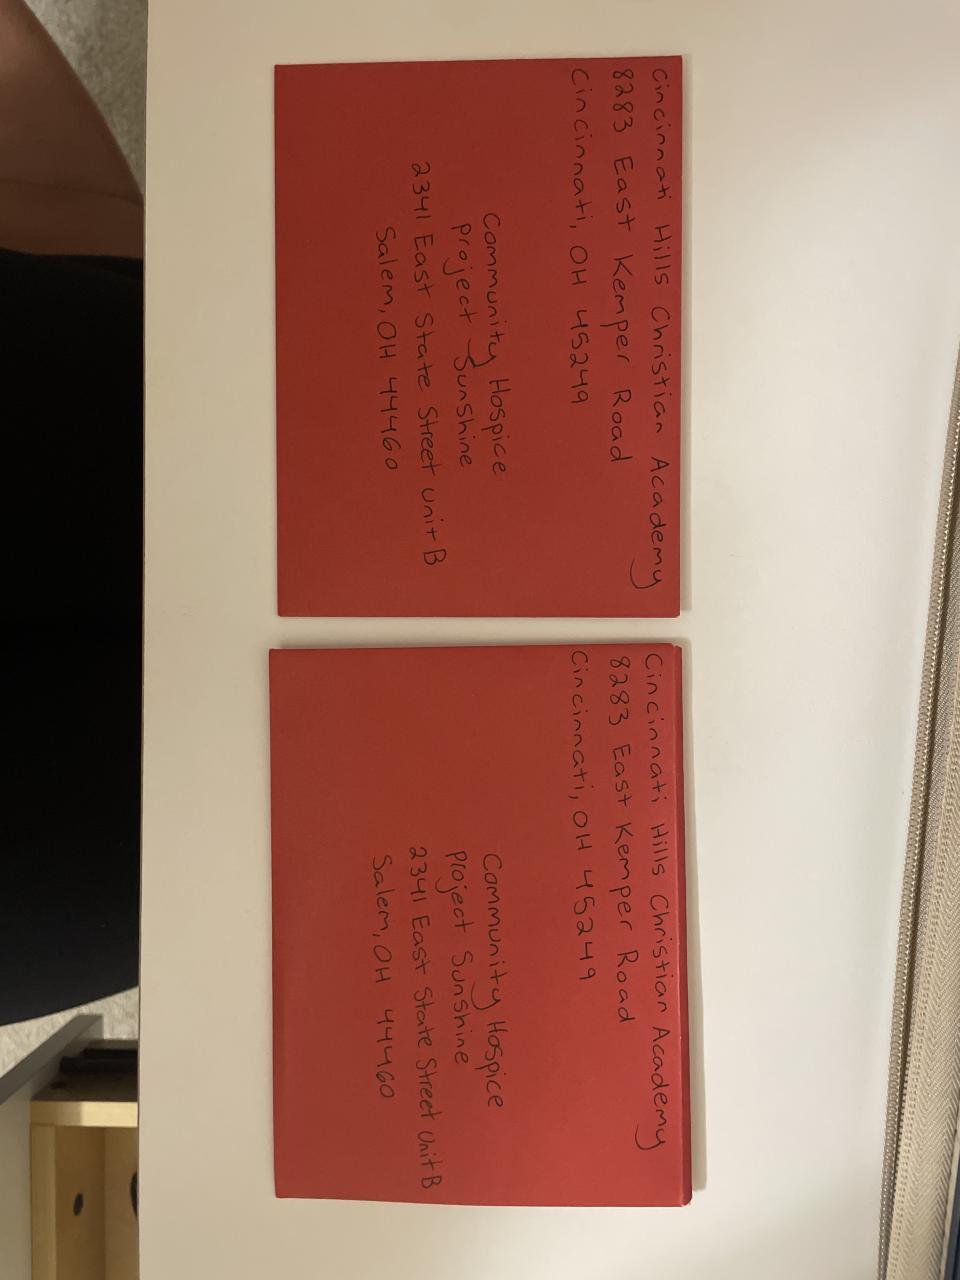 Cincinnati Hills Christian Academy
8283 East Kemper Road
Cincinnati, OH 45249
Community Hospice
Project Sunshine
2341 East State Street Unit B
Salem, OH 44460
Cincinnati Hills Christian Academy
8283 East Kemper Road
Cincinnati, OH 45249
Community Hospice
Project Sunshine
2341 East State Street Unit B
Salem, OH 44460